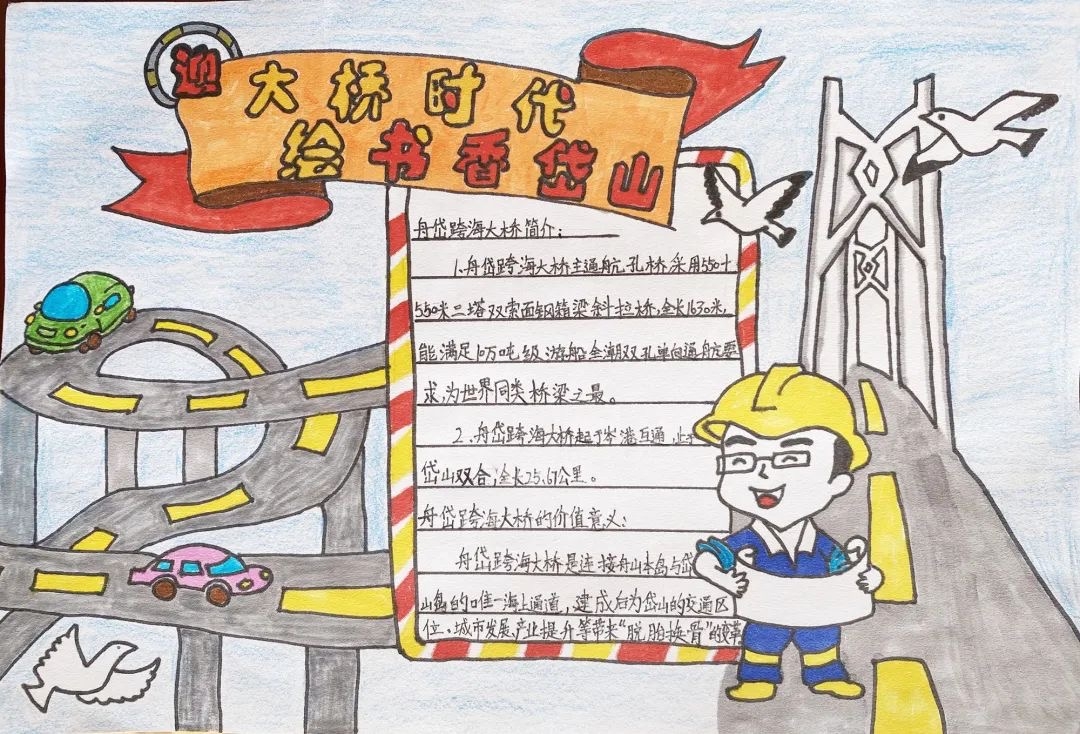 迎大桥时代
绘书香岱山
舟岱跨海大桥简介：
1、舟岱跨海大桥主通航孔桥，采用550+
550米三塔双索面钢箱梁斜拉桥，全长1630米，
能满足10万吨级游船全潮双孔单向通航要
求，为世界同类桥梁之最。
2、舟岱跨海大桥起于岑港互通，止于
岱山双合，全长25.67公里。
舟岱跨海大桥的价值意义：
舟岱跨海大桥是连接舟山本岛与岱
山岛的唯一海上通道，建成后为岱山的交通区
位、城市发展、产业提升等带来“脱胎换骨”的变革